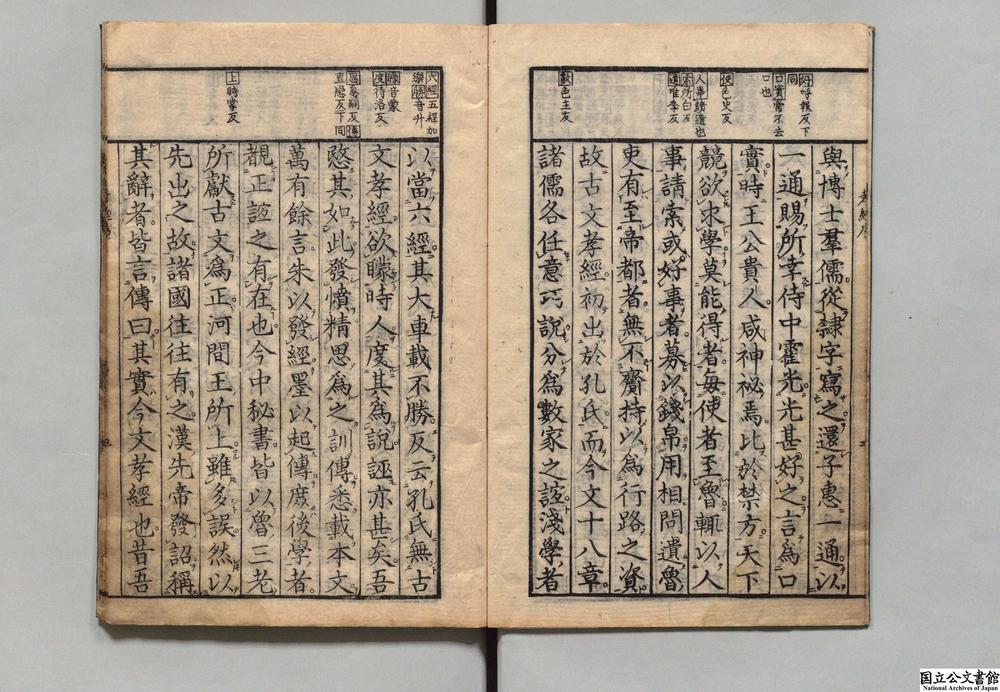 好呼報反下
同
口實常不去
口也
使色吏反
人事饋遺也
索所白反
遺唯季反
數色主反
與博士羣儒從隸字寫之還子惠一通以
一通賜所幸侍中霍光光甚好之言為口
實時王公貴人咸神祕焉比於禁方天下
競欲求學莫能得者每使者至魯輒以人
事請索或好事者募以錢帛用相問遺魯
吏有至帝都者無不齎持以為行路之資
故古文孝經初出於孔氏而今文十八章
諸儒各任意巧說分為數家之誼淺學者
六經五經加
樂勝音升
矇音蒙
度待洛反
愍眉嗣反傳
直戀反下同
上時掌反
以當六經其大車載不勝反云孔氏無古
文孝經欲矇時人度其為說誣亦甚矣吾
愍其如此發憤精思為之訓傳悉載本文
萬有餘言朱以發經墨以起傳庶後學者
覩正誼之有在也今中秘書皆以魯三老
所獻古文爲正河間王所上雖多誤然以
先出之故諸國往往有之漢先帝發詔稱
其辭者皆言傳曰其實今文孝經也昔吾
国立公文書館
National Archives of Japan